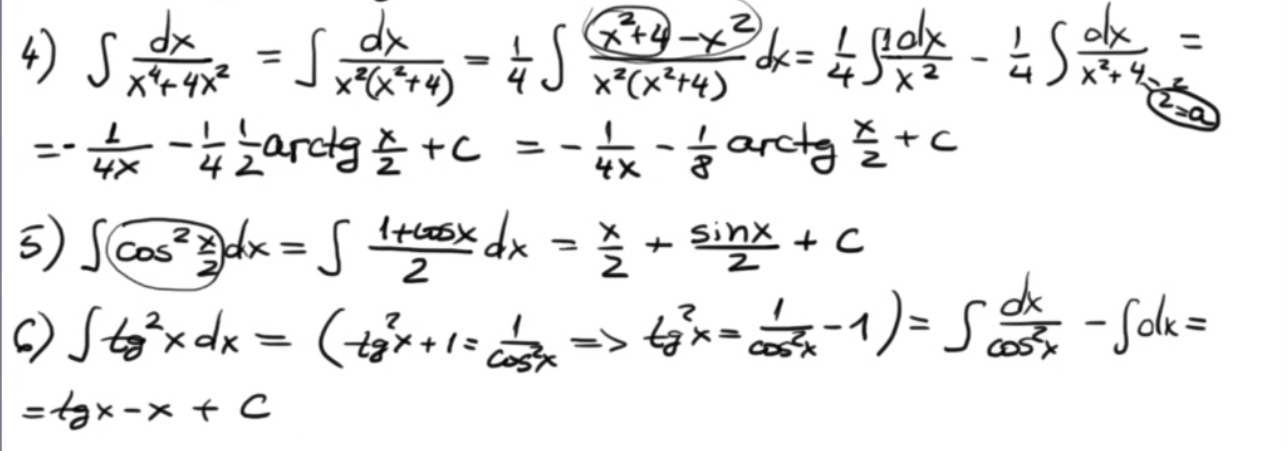 4) ∫ dx/(x⁴+4x²) = ∫ dx/(x²(x²+4)) = 1/4 ∫ (x²+4-x²)/(x²(x²+4)) dx = 1/4 ∫ 1dx/x² - 1/4 ∫ dx/(x²+4) = 2=a
= - 1/(4x) - 1/4 1/2 arctg x/2 + C = - 1/(4x) - 1/8 arctg x/2 + C
5) ∫ cos² x/2 dx = ∫ (1+cosx)/2 dx = x/2 + sinx/2 + C
6) ∫ tg²x dx = (tg²x + 1 = 1/cos²x => tg²x = 1/cos²x - 1) = ∫ dx/cos²x - ∫ dx =
= tgx - x + C